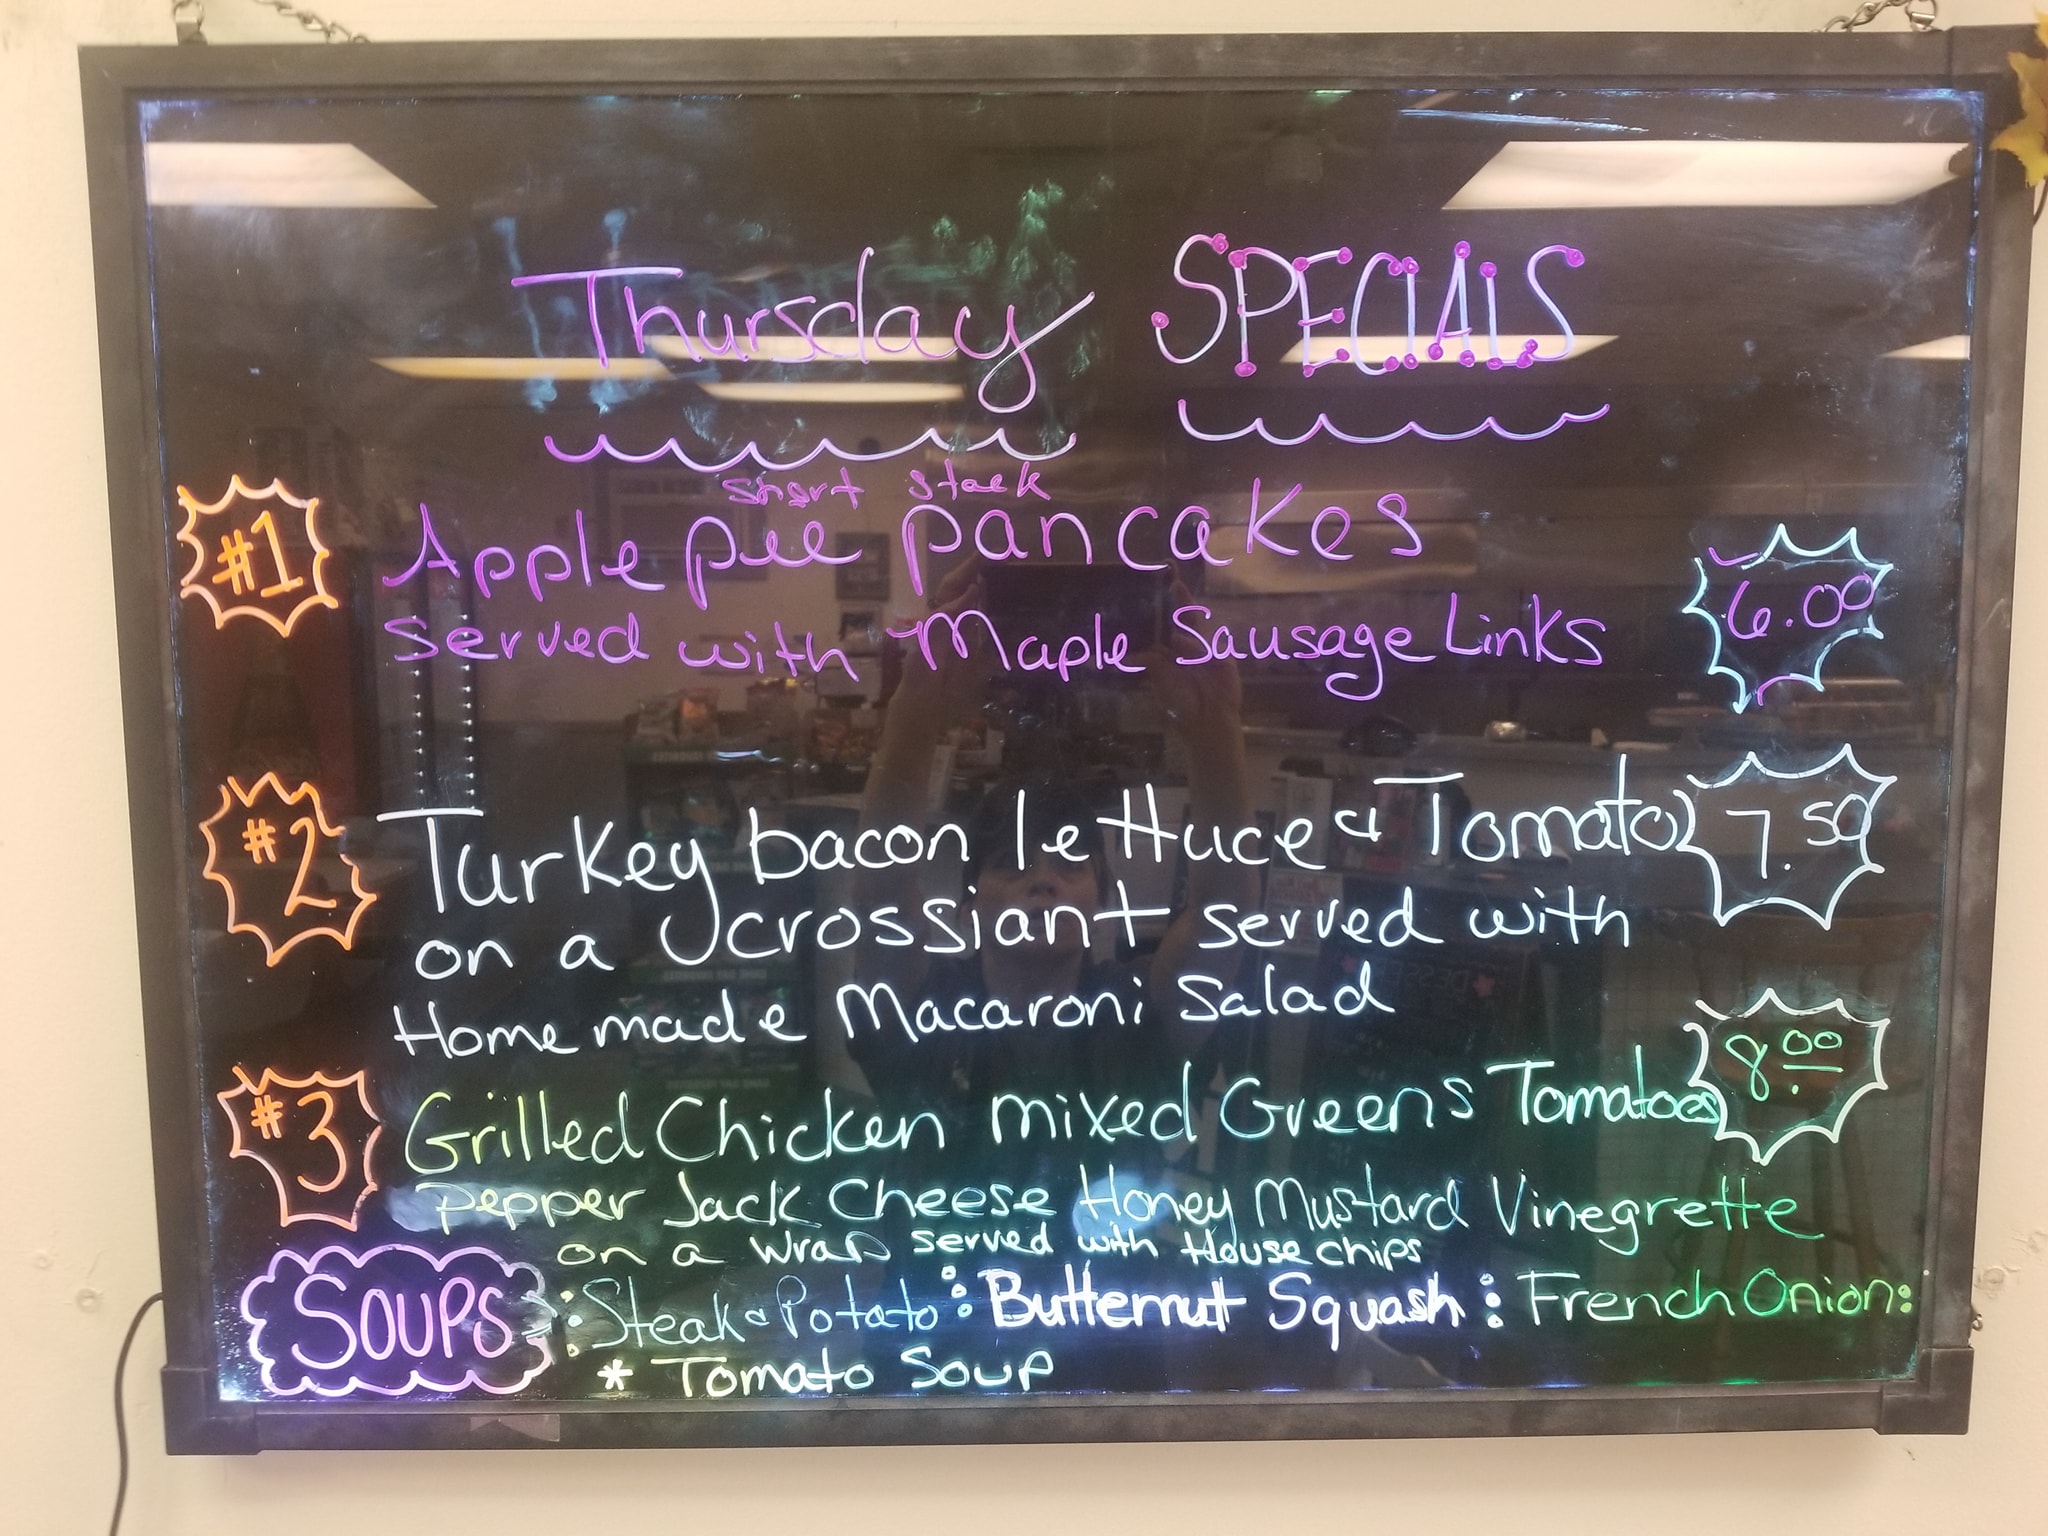 Thursday SPECIALS
short stack
#1 Apple pie pancakes
served with Maple Sausage Links 6.00
#2 Turkey bacon lettuce & Tomato 7.50
on a crossiant served with
Homemade Macaroni Salad
#3 Grilled Chicken mixed Greens Tomatoes 8.00
pepper Jack Cheese Honey Mustard Vinegrette
on a wrap served with House chips
SOUPS : Steak & Potato : Butternut Squash : French Onion :
* Tomato Soup